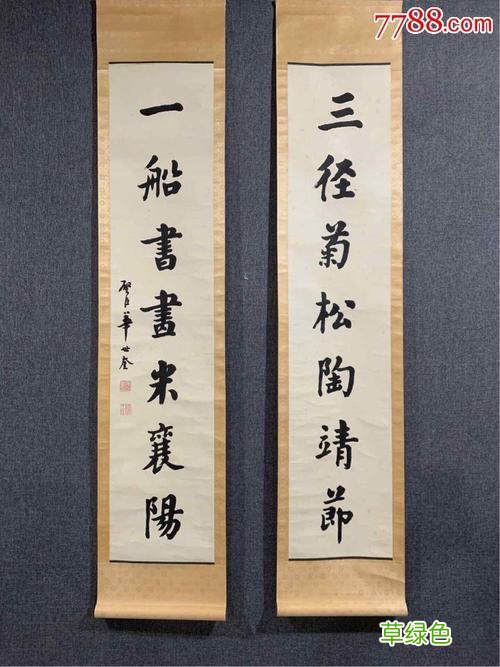 7788.com
三径菊松陶靖節
一船書畫米襄陽
璧臣華世奎
草绿色